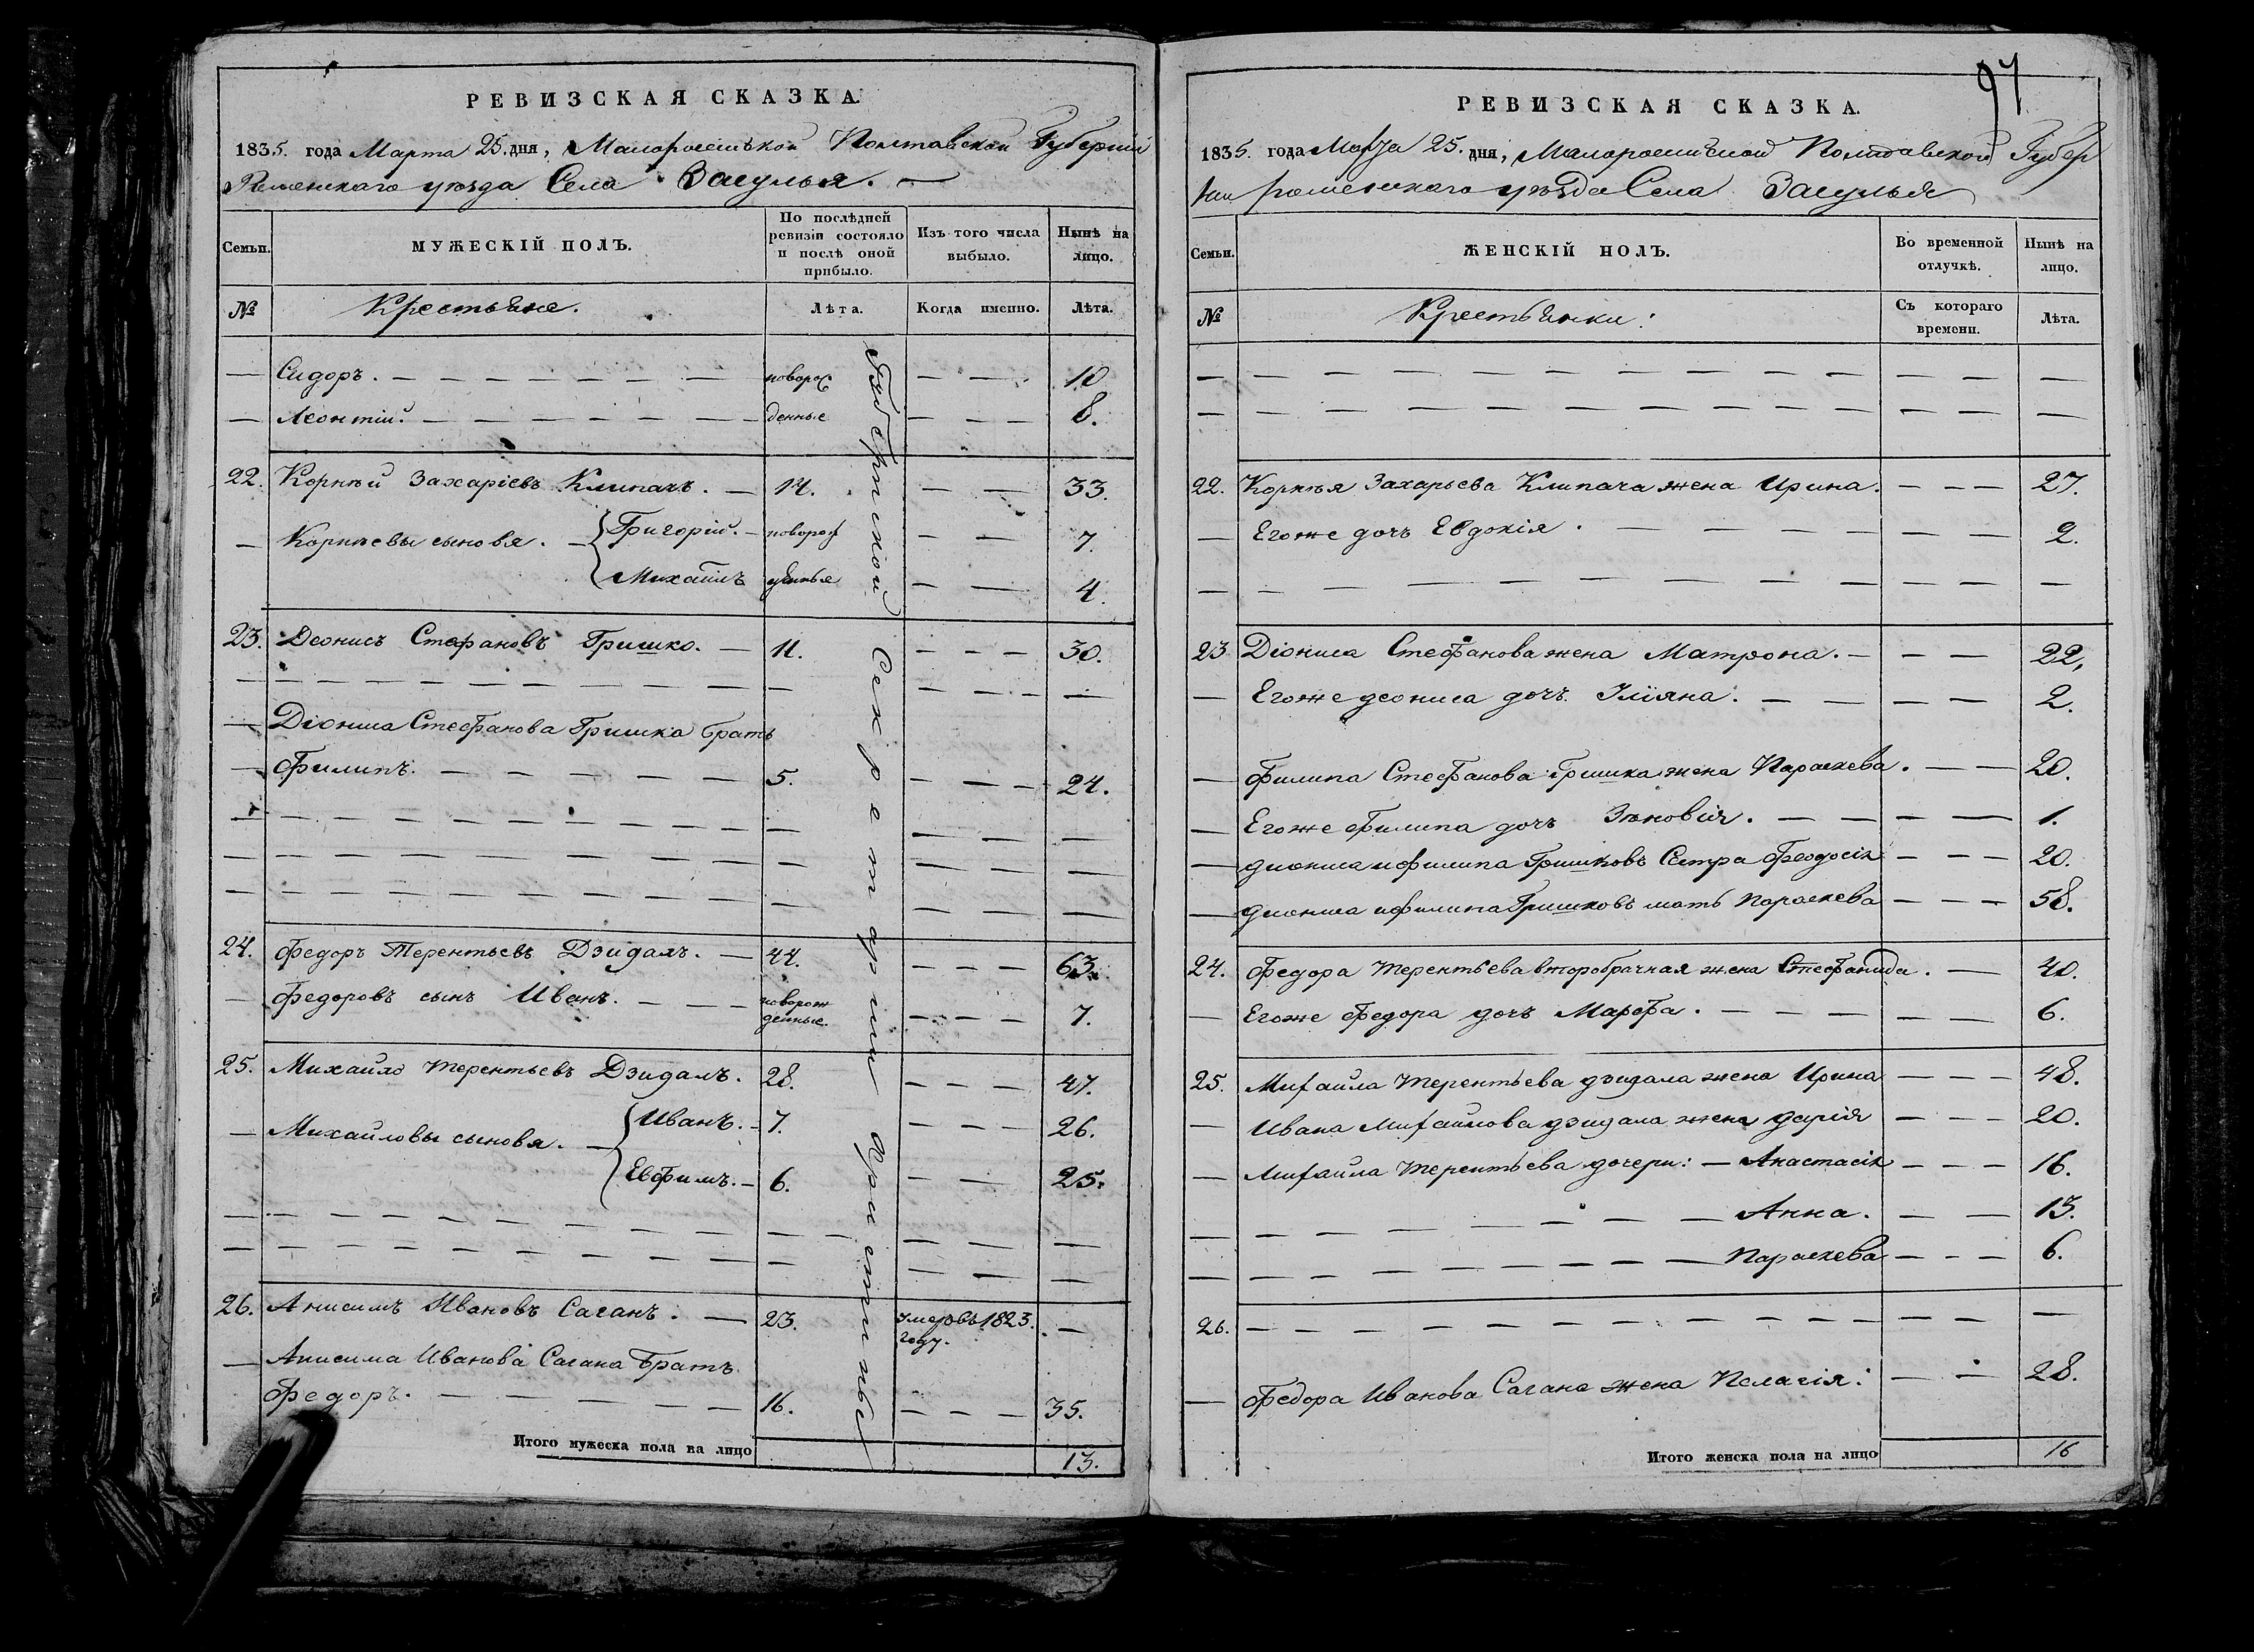 РЕВИЗСКАЯ СКАЗКА.
1835. года Марта 25. дня, Малороссійской Полтавской Губерніи
Роменскаго уезда Села Засулья. —
Семьи.
МУЖЕСКІЙ ПОЛЪ.
По послѣдней ревизіи состояло и послѣ оной прибыло.
Изъ того числа выбыло.
Нынѣ на лицо.
№
Крестьяне.
Лѣта.
Когда именно.
Лѣта.
— Сидоръ. — — — новорож — — 10
— Леонтій. — — — денные — — — 8.
22. Корнѣй Захаріевъ Клипачъ. — 14. — — 33.
— Корнѣевы сыновя. — Григорій. — новорож — — 7.
Михайлъ — — 4.
23. Деонисъ Стефановъ Гришко. — 11. — — — 30.
— Діониса Стефанова Гришка братъ
— Филипъ. — — — 5. — — — 24.
24. Федоръ Терентьевъ Дзидалъ. — 44. — — — 63.
— Федоровъ сынъ Иванъ. — — — новорож
денные. — — — 7.
25. Михайло Терентьевъ Дзидалъ. 28. — — — 47.
— Михайловы сыновя. — Иванъ. — 7. — — — 26.
Евфимъ. — 6. — — 25.
26. Анисимъ Ивановъ Саганъ. — 23. умеръ въ 1823.
году. —
— Анисима Иванова Сагана братъ
Федоръ. — — — 16. — — — 35.
Итого мужеска пола на лицо 13.
Губернской Секретарши Христины
97
РЕВИЗСКАЯ СКАЗКА.
1835. года Марта 25. дня, Малороссійской Полтавской Губер
ніи роменскаго уѣзда Села Засулья
Семьи.
ЖЕНСКІЙ ПОЛЪ.
Во временной отлучкѣ.
Нынѣ на лицо.
№
Крестьянки:
Съ котораго времени.
Лѣта.
22. Корнѣя Захарьева Клипача жена Ирина. — — — 27.
— Егоже дочъ Евдокія. — — — 2.
23 Діониса Стефанова жена Матрона. — — — 22,
— Егоже деониса дочъ Іліяна. — — — 2.
— Филипа Стефанова Гришка жена Параскева. — — 20.
— Егоже Филипа дочъ Зѣновія. — — — 1.
— диониса и филипа Гришковъ Сестра Феодосія — — — 20.
— диониса и филипа Гришковъ мать Параскева — — — 58.
24. Федора Терентьева второбрачная жена Стефанида. — 40.
— Егоже Федора дочъ Марфа. — — — 6.
25. Михайла Терентьева дзидала жена Ирина — — — 48.
— Ивана Михайлова дзидала жена дарія — — — 20.
— Михайла Терентьева дочери: — Анастасія — — — 16.
— Анна. — — 13.
— Параскева — — — 6.
26. — — —
— Федора Иванова Сагана жена Пелагія: — — 28.
Итого женска пола на лицо 16